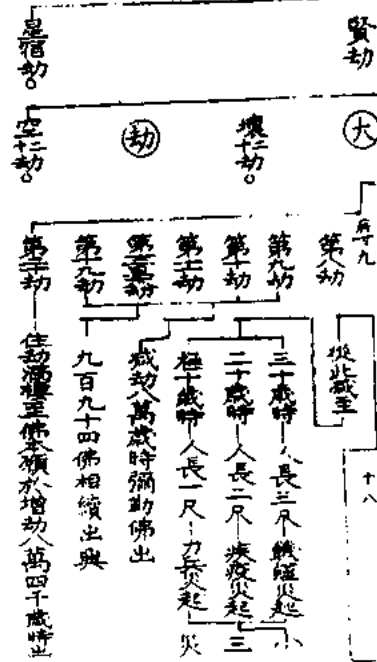 賢劫
星宿劫。
大
壞二十劫。
劫
空二十劫。
第八劫
第九劫
第十劫
第十一劫
第十九劫
第二十劫
十八
從此減至
三十歲時 人長三尺 饑饉災起 小
二十歲時 人長二尺 疾疫災起 三
極十歲時 人長一尺 刀兵災起 災
減劫八萬歲時彌勒佛出
九百九十四佛相續出興
住劫滿樓至佛本願於增劫八萬四千歲時出